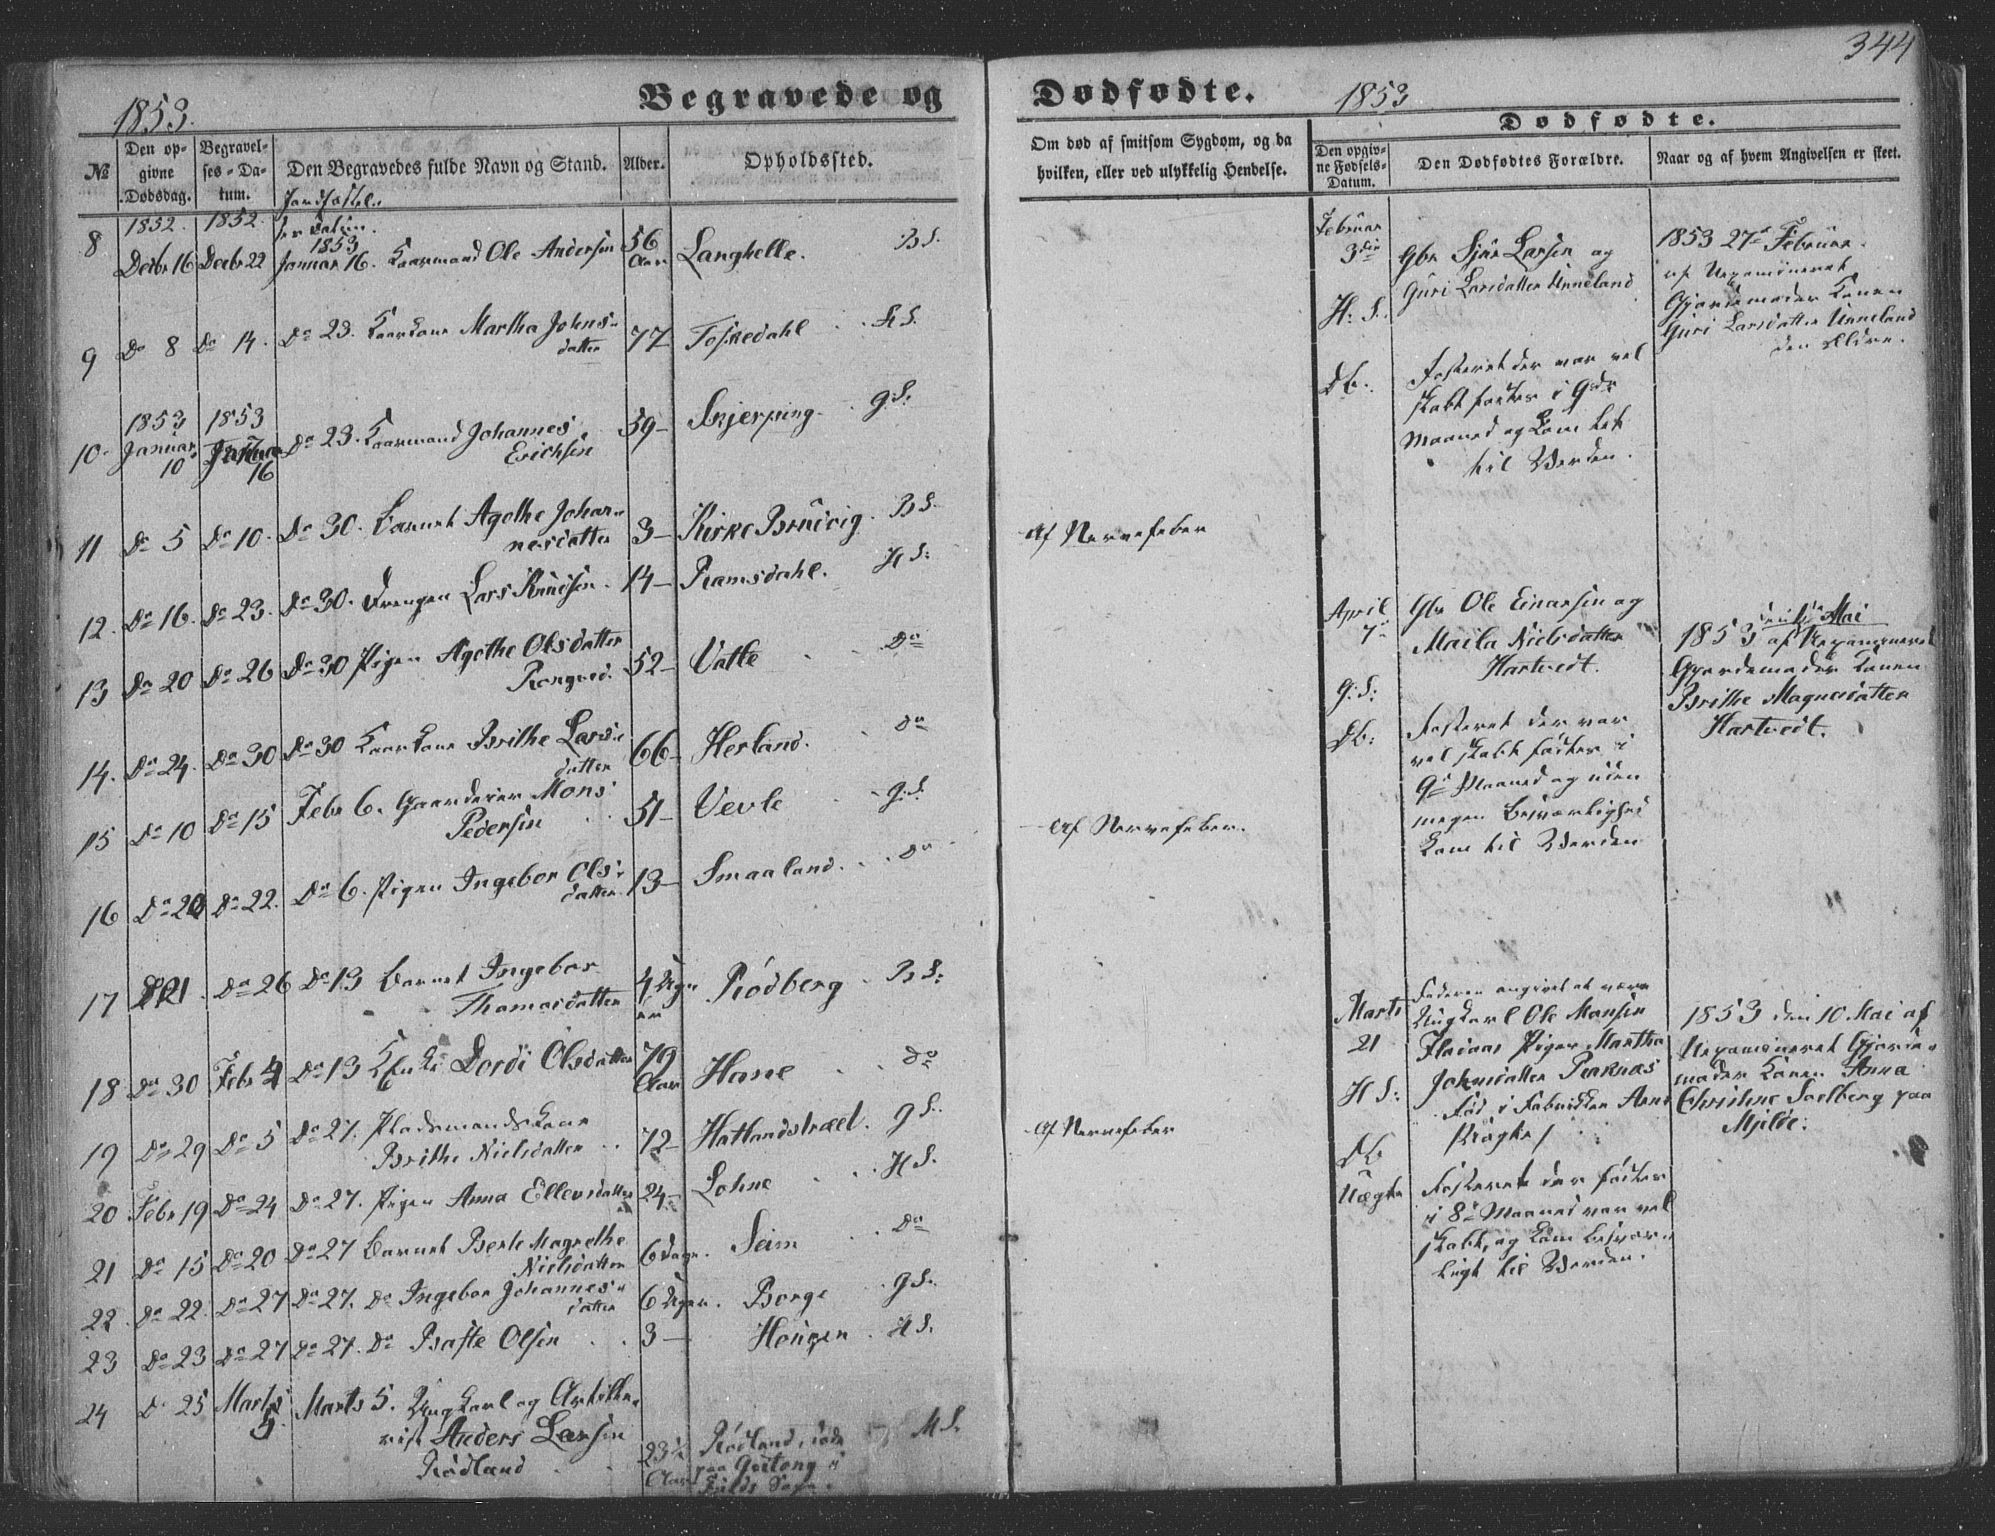 344
1853.
Begravede og
Dødfødte.
1853
№
Den op-
givne
Dødsdag.
Begravel-
ses-Da-
tum.
Den Begravedes fulde Navn og Stand.
Alder.
Opholdssted.
Om død af smitsom Sygdom, og da
hvilken, eller ved ulykkelig Hendelse.
Dødfødte.
Den opgiv-
ne Fødsels-
Datum.
Den Dødfødtes Forældre.
Naar og af hvem Angivelsen er skeet.
1852. 1852.
1853
8 Decbr 16 Decbr 22 Januar 16. Kaarmand Ole Andersen 56 Aar Langhelle. B S.
9 Do 8 Do 14. Do 23. Kaarkone Martha Johns-
datter 77 Toskedahl H S.
1853 1853
10. Januar 10 Januar 16 Do 23. Kaarmand Johannes
Erichsen 59 Skjerping. G S.
11 Do 5 Do 10. Do 30. Barnet Agethe Johan-
nesdatter 3 Kirke Bruvig. B S. Af Nervefeber
12. Do 16. Do 23. Do 30. Drengen Lars Knudsen. 14 Ramsdahl. H S.
13 Do 20 Do 26 Do 30 Pigen Agethe Olsdatter
52 Vatle Do
14. Do 24. Do 30 Do 30 Kaarkone Brithe Lars-
datter 66 Herland. Do
15 Do 10 Do 15 Febr 6. Gaardeier Mons
Pedersen 51 Vevle G S. Af Nervefeber.
16 Do 20 Do 22. Do 6. Pigen Ingebor Ols-
datter 13 Smaaland. Do
17 Do 21. Do 26 Do 13 Barnet Ingebor
Thomasdatter 4 Uger Rödberg B S.
18 Do 30 Febr 4 Do 13 Dordi Olsdatter 79 Aar Hane Do
19 Do 29 Do 5 Do 27. Pladsmandskone
Brithe Nielsdatter 72 Hatlandstræet. G S. Af Nervefeber
20 Febr 19 Do 24 Do 27. Pigen Anna Ellevsdatter 24 Lohne H S.
21 Do 15 Do 20 Do 27 Barnet Berte Magrethe
Nielsdatter 6 Dage. Seim Do
22 Do 22. Do 27 Do 27. Do Ingebor Johannes-
datter 6 Uger. Borge G S.
23 Do 23 Do 27 Do 27. Do Baste Olsen 3 Hougen H S.
24 Do 25 Marts 5. Marts 5. Ungkarl og Artille-
rist Anders Larsen
Rödland 23½ Aar Rödland, död
paa
H S.
Februar
3die
H: S.
Db.
Gbr Sjur Larsen og
Guri Larsdatter Unneland
Fosteret der var vel
skabt fødtes i 9de
Maaned og kom let
til Verden.
1853 27de Februar
af Uexamineret
Gjordemoder Konen
Guri Larsdatter Unneland
den Eldre.
April
7de
G: S:
Db:
Gbr Ole Einarsen og
Maila Nielsdatter
Hartvedt.
Fosteret der var
vel skabt fødtes i
9de Maaned og uden
megen Besværlighed
kom til Verden
Mai
1853 af Uexamineret
Gjordemoder Konen
Brithe Magnesdatter
Hartvedt.
Marts
21
H S:
Db
Uægte
Faderen angivet at være
Ungkarl Ole Monsen
Fladaas Pigen Martha
Johnsdatter Raknæs
Fosteret der fødtes
i 8de Maaned var vel
skabt, og kom besvær-
ligt til Verden.
1853 den 10 Mai af
Uexamineret Gjorde-
moder Konen Anna
Christine Soelberg paa
Mjelde.